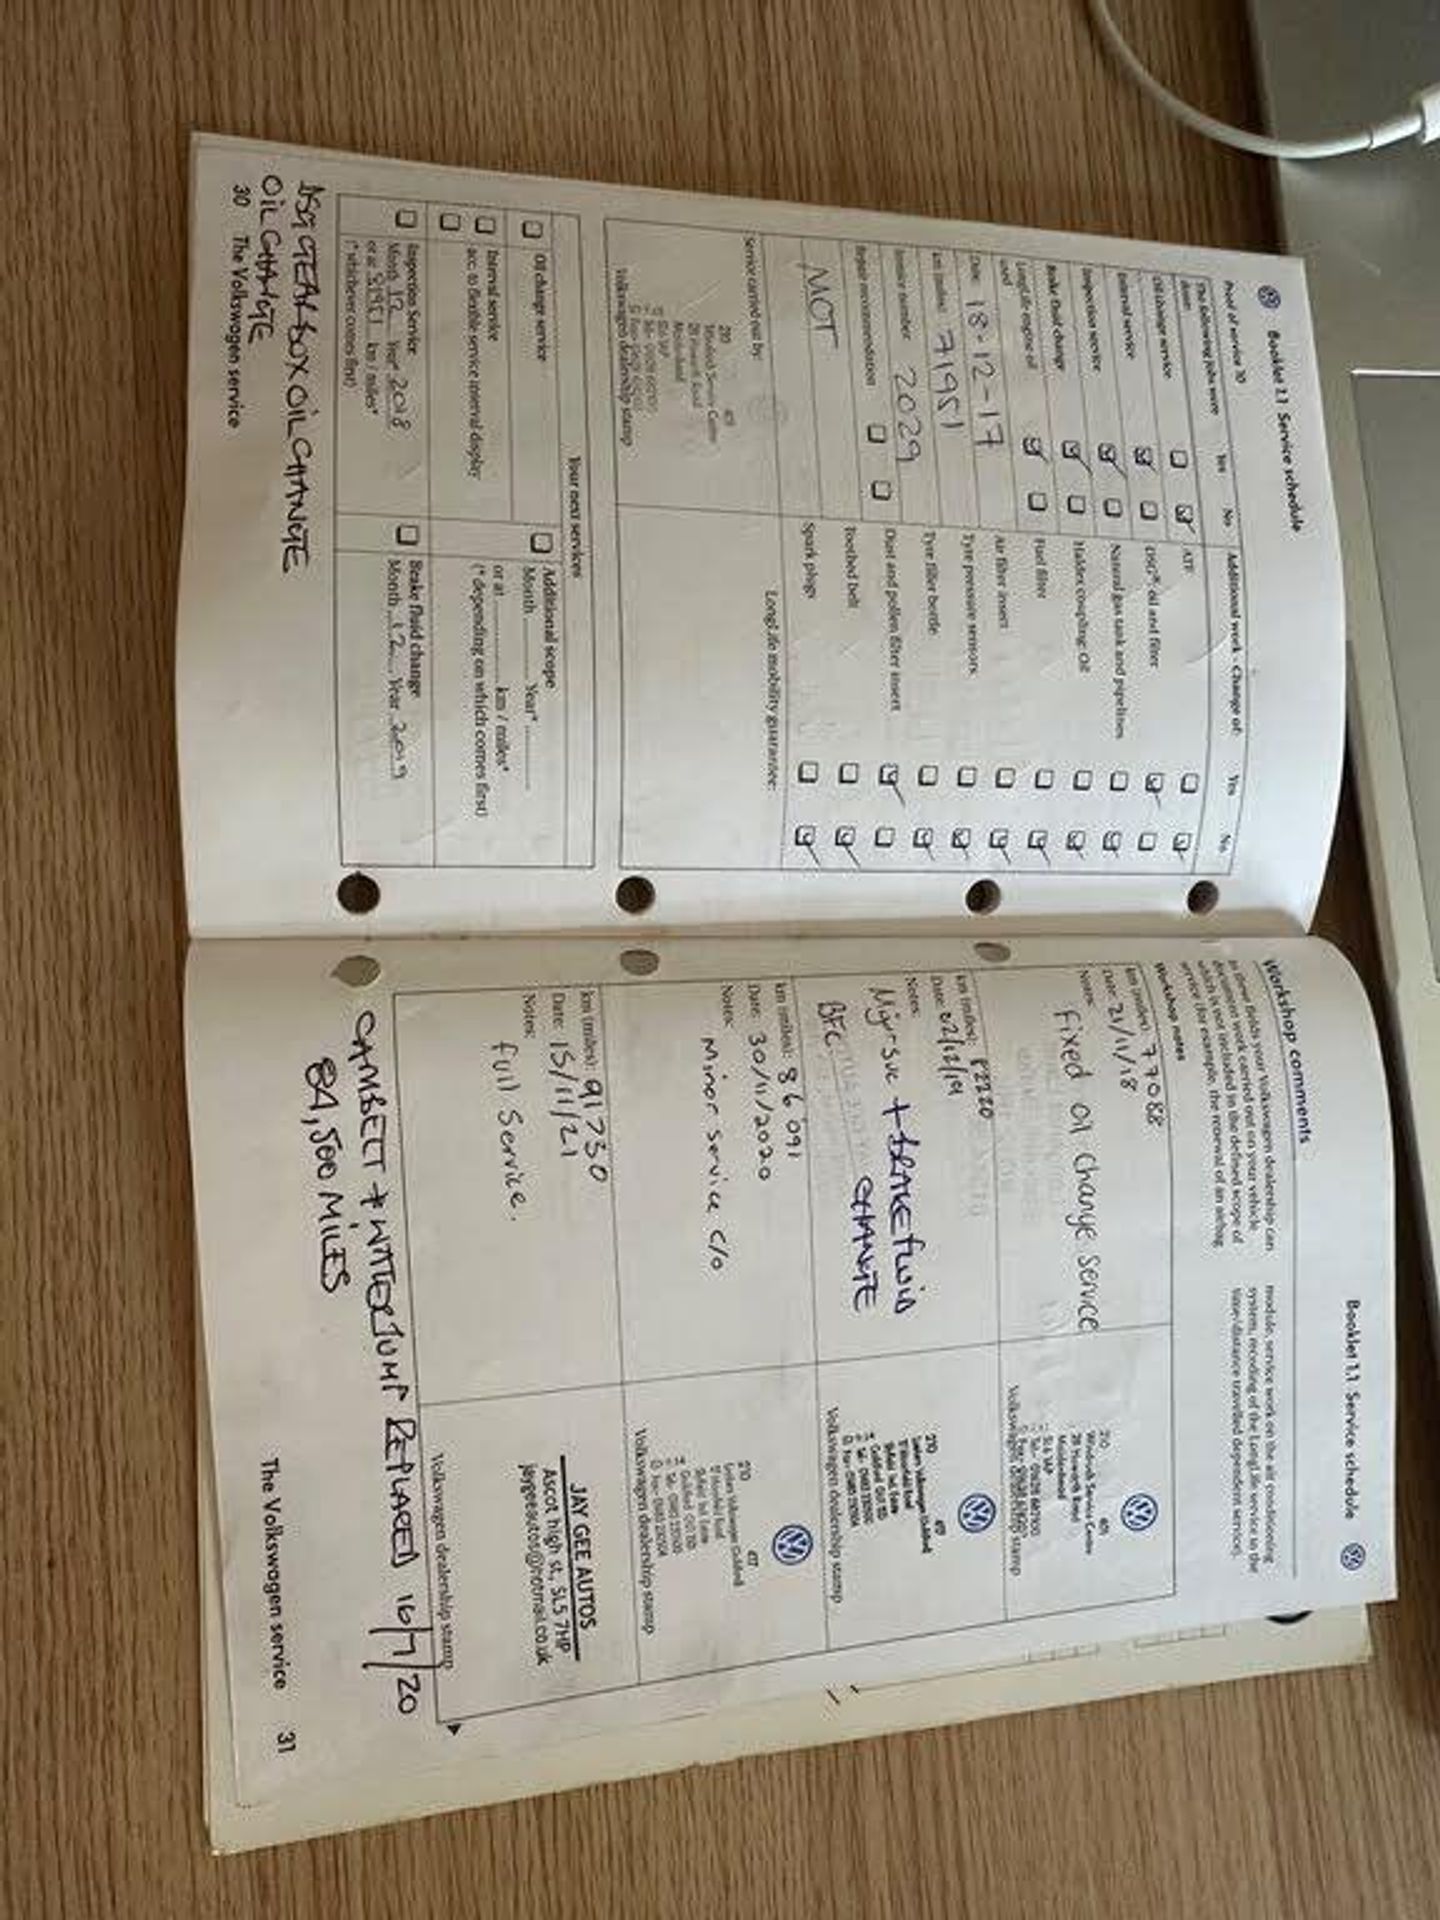 Booklet 1.1 Service schedule
Proof of service 10
The following jobs were done: Yes No
Oil change service
Interval service
Inspection service
Brake fluid change
LongLife engine oil used
Date: 18-12-17
km (miles): 71951
Invoice number: 2029
Repair recommendation
MOT
Service carried out by:
Windrush Service Centre
Maidenhead
Volkswagen dealership stamp
Additional work - Change of: Yes No
ATF
DSG® oil and filter
Natural gas tank and pipelines
Haldex coupling: Oil
Fuel filter
Air filter insert
Tyre pressure sensors
Tyre filler bottle
Dust and pollen filter insert
Toothed belt
Spark plugs
LongLife mobility guarantee:
Your next services
Oil change service
Interval service
acc. to flexible service interval display
Inspection Service
Month 12 Year 2018
or at 81951 km / miles*
(*whichever comes first)
Additional scope
Month Year*
or at km / miles*
(* depending on which comes first)
Brake fluid change
Month 12 Year 2019
30 The Volkswagen service
DSG GEARBOX OIL CHANGE
OIL CHANGE
Booklet 1.1 Service schedule
Workshop comments
In these fields your Volkswagen dealership can
document work carried out on your vehicle
which is not included in the defined scope of
service (for example, the renewal of an airbag
module, service work on the air conditioning
system, recoding of the LongLife service to the
time/distance travelled dependent service).
Workshop notes
km (miles): 77088
Date: 21/11/18
Notes:
Fixed oil change service
Windrush Service Centre
Maidenhead
SL6
Volkswagen dealership stamp
km (miles): 82220
Date: 02/12/19
Notes:
Major svc + BRAKE FLUID
BFC CHANGE
Volkswagen Guildford
Volkswagen dealership stamp
km (miles): 86091
Date: 30/11/2020
Notes:
Minor service c/o
Volkswagen Guildford
Volkswagen dealership stamp
km (miles): 91730
Date: 15/11/21
Notes:
full Service.
JAY GEE AUTOS
Ascot high st, SL5 7HP
jaygeeautos@hotmail.co.uk
Volkswagen dealership stamp
CAMBELT + WATER PUMP REPLACED 16/7/20
84,500 MILES
The Volkswagen service 31